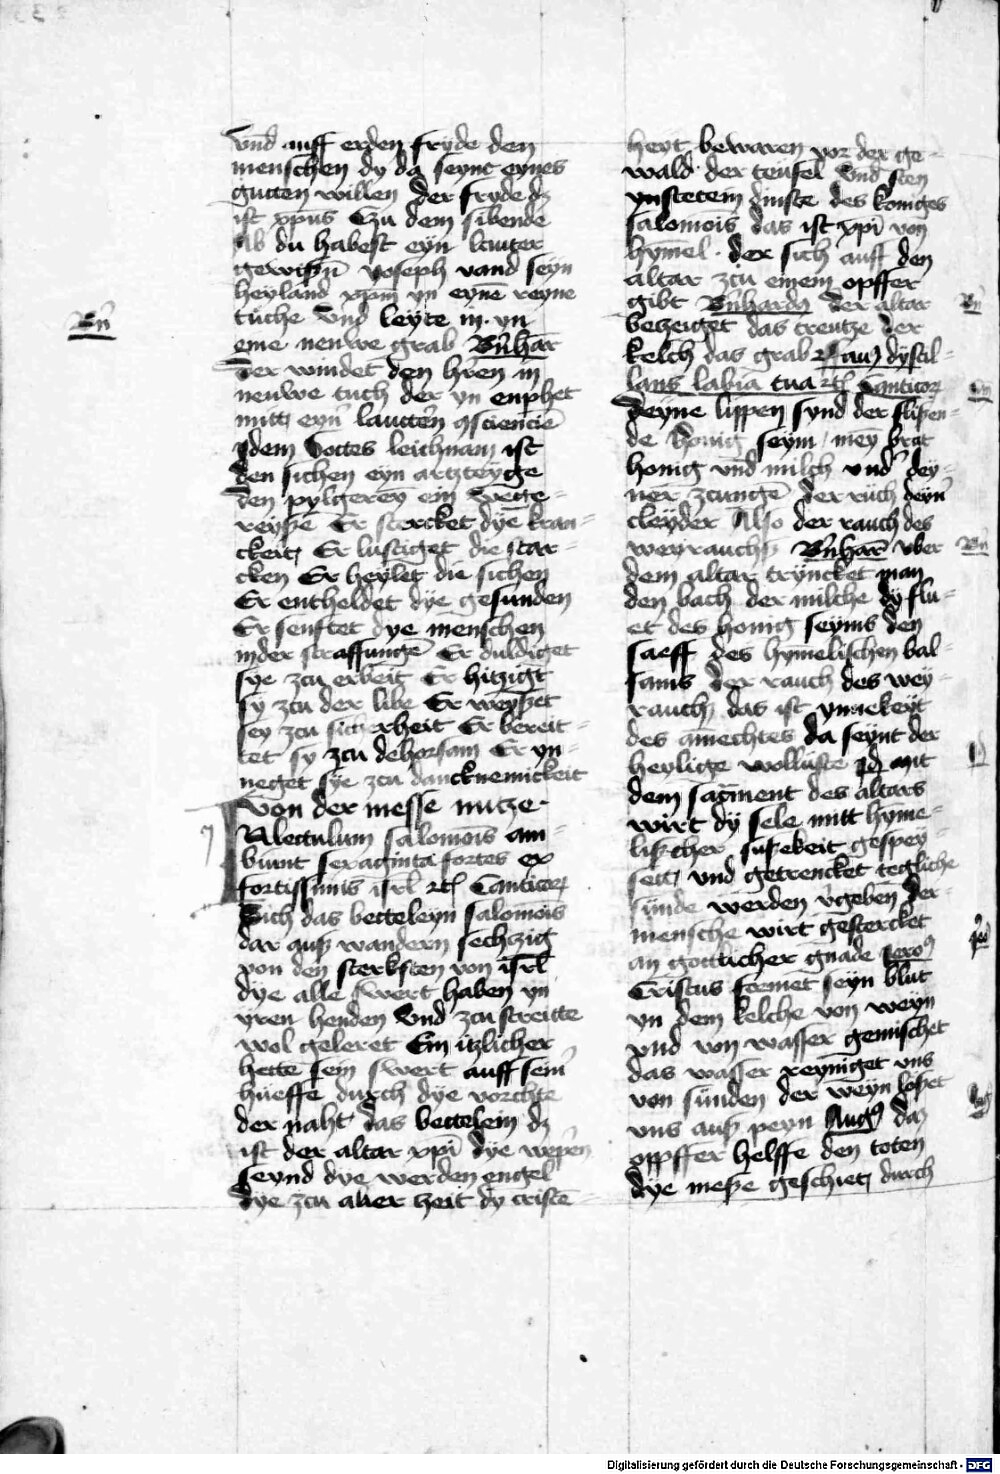 vnd auff erden fryde den
menschen dy da seynt eynes
gutten willen der fryde dz
ist xpūs Czu dem sibende
ab du habest eyn lauter
gewißñ yoseph vand seyn
heyland xpm̄ yn eynē reyne
tuche Vnd leyte in yn
eme neuwe grab Bn̄har
Der windet den hr̄en in
neuwe tuch der yn enphet
mitt eyn̄ lautter̄ ꝯsciencie
Idem Gottes leichnam ist
den sichen eyn artzteyge
Den pylgerey ein wege=
reyße Er stercket dye kran=
ckeit Er lustiget die star=
cken Er heylet die sichen
Er entheldet dye gesunden
Er senftet dye menschen
in der straffungē Er duldiget
sye zcu erbeit Er hitzigt
sy zcu der libe Er weyßet
sey zcu sicherheit Er bereit=
tet sy zcu dehorsam Er yn=
neget sye zcu dancknemickeit
Von der messe nutze
Nlectulum salomois am=
biunt sexaginta fortes ex
fortissimis isr̄l ⁊tc̄ Canticoꝝ
Sich das betteleyn salomois
dar auß wandern sechzig
von den sterksten von isr̄l
dye alle swert haben yn
yren henden Vnd zcu streitte
wol geleret Ein itzlicher
hette sein swert auff sein̄
hueffe durch dye vorchte
der naht das bettelein dz
ist der altar xp̄i dye wepēn
seynd dye werden engel
dye zcu aller zeit dy cristē=
heyt bewaren vor der ge=
wald der teufel Vnd sten
ynstetem dinste des koniges
salomois das ist xp̄i von
hymel der sich auff den
altar zcu einem opffer
gibt Bn̄hardꝯ Der altar
bezeiget das creutze der
kelch das grab ⁊c̄ fauꝫ dystil=
lans labia tua ⁊tc̄ Canticoꝝ
Deyne lippen synd der flißen=
de honig seym mey brat
honig vnd milch vnd dey=
ner zcungē der ruch deyn̄
cleyder Also der rauch des
weyrauchß Bn̄har vber
dem altar tryncket man
den bach der milche dy flu=
et des honig seyms den
saeff des hymelischen bal=
sams der rauch des wey=
rauchs das ist ynnekeyt
des amechtes da seynt der
heylige wolluste Idē mit
dem sacr̄ment des altars
wirt dy sele mitt hyme=
lißcher sußekeit gespey=
seit vnd getrencket tegliche
sunde werden v̄geben Der
mensche wirt gestercket
an gotlicher gnade Jeroꝰ
Cristus formet seyn blut
yn dem kelche von weyn
vnd von wasser gemischet
das wasser reyniget vns
von sunden der weyn loßet
vns auß peyn Augꝰ daz
opffer helffe den toten
dye meße geschiet durch
Bn̄
Bn̄
Bn̄